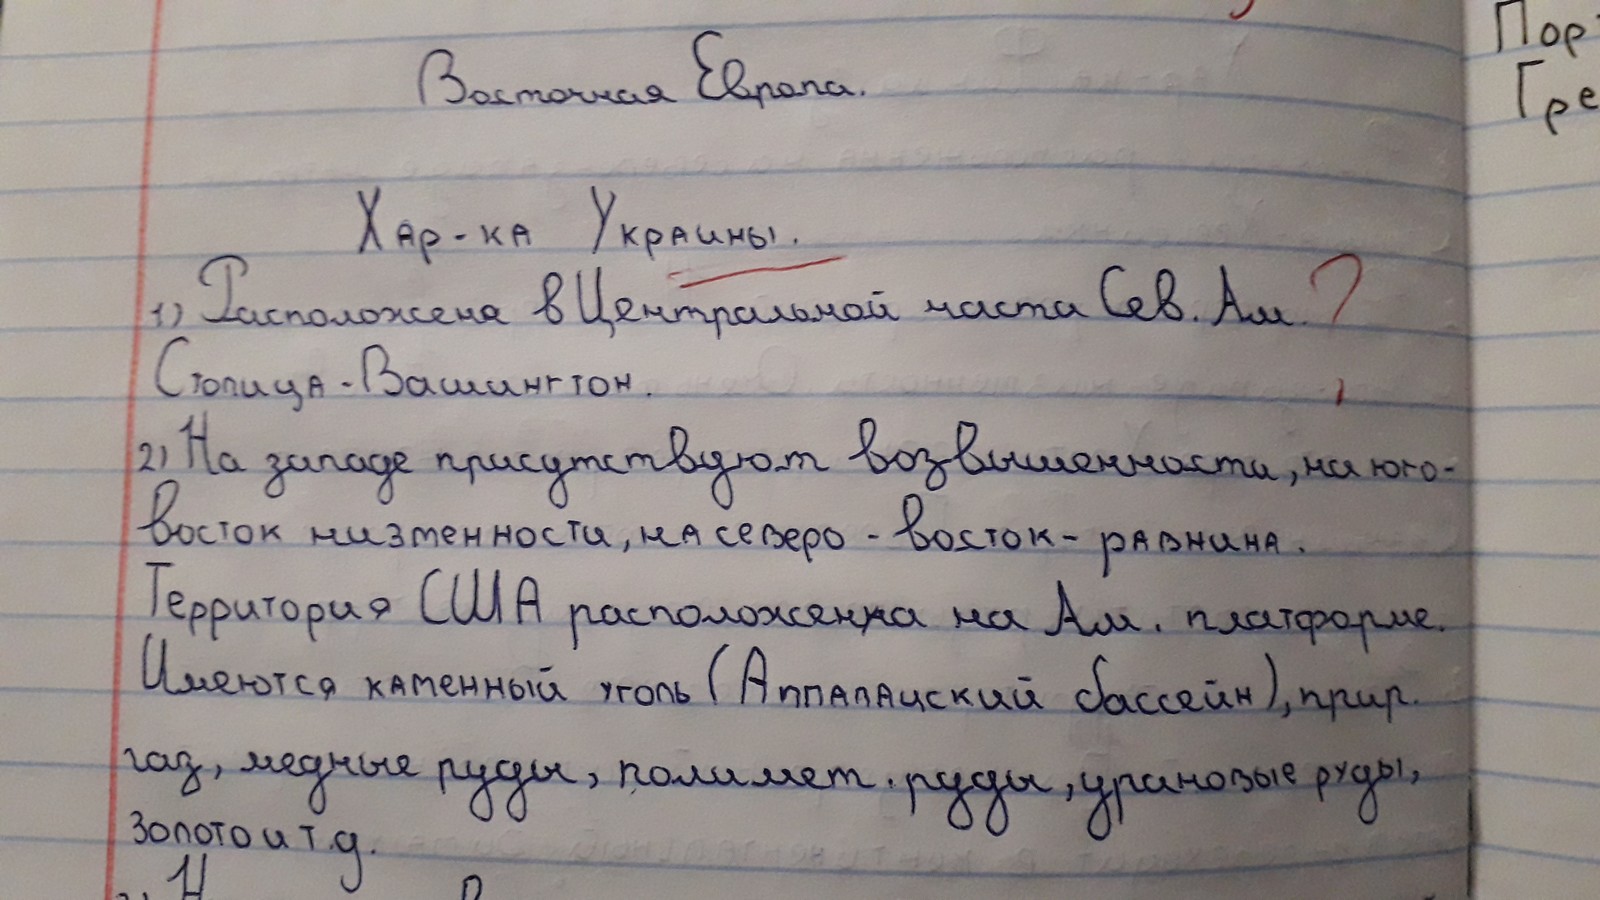 Восточная Европа.
Хар-ка Украины.
1) Расположена в Центральной части Сев. Ам. ?
Столица - Вашингтон.
2) На западе присутствуют возвышенности, на юго-
восток низменности, на северо - восток - равнина.
Территория США расположенна на Ам. платформе.
Имеются каменный уголь (Аппалацский бассейн), прир.
газ, медные руды, полимет. руды, урановые руды,
золото и т.д.
Пор
Гре